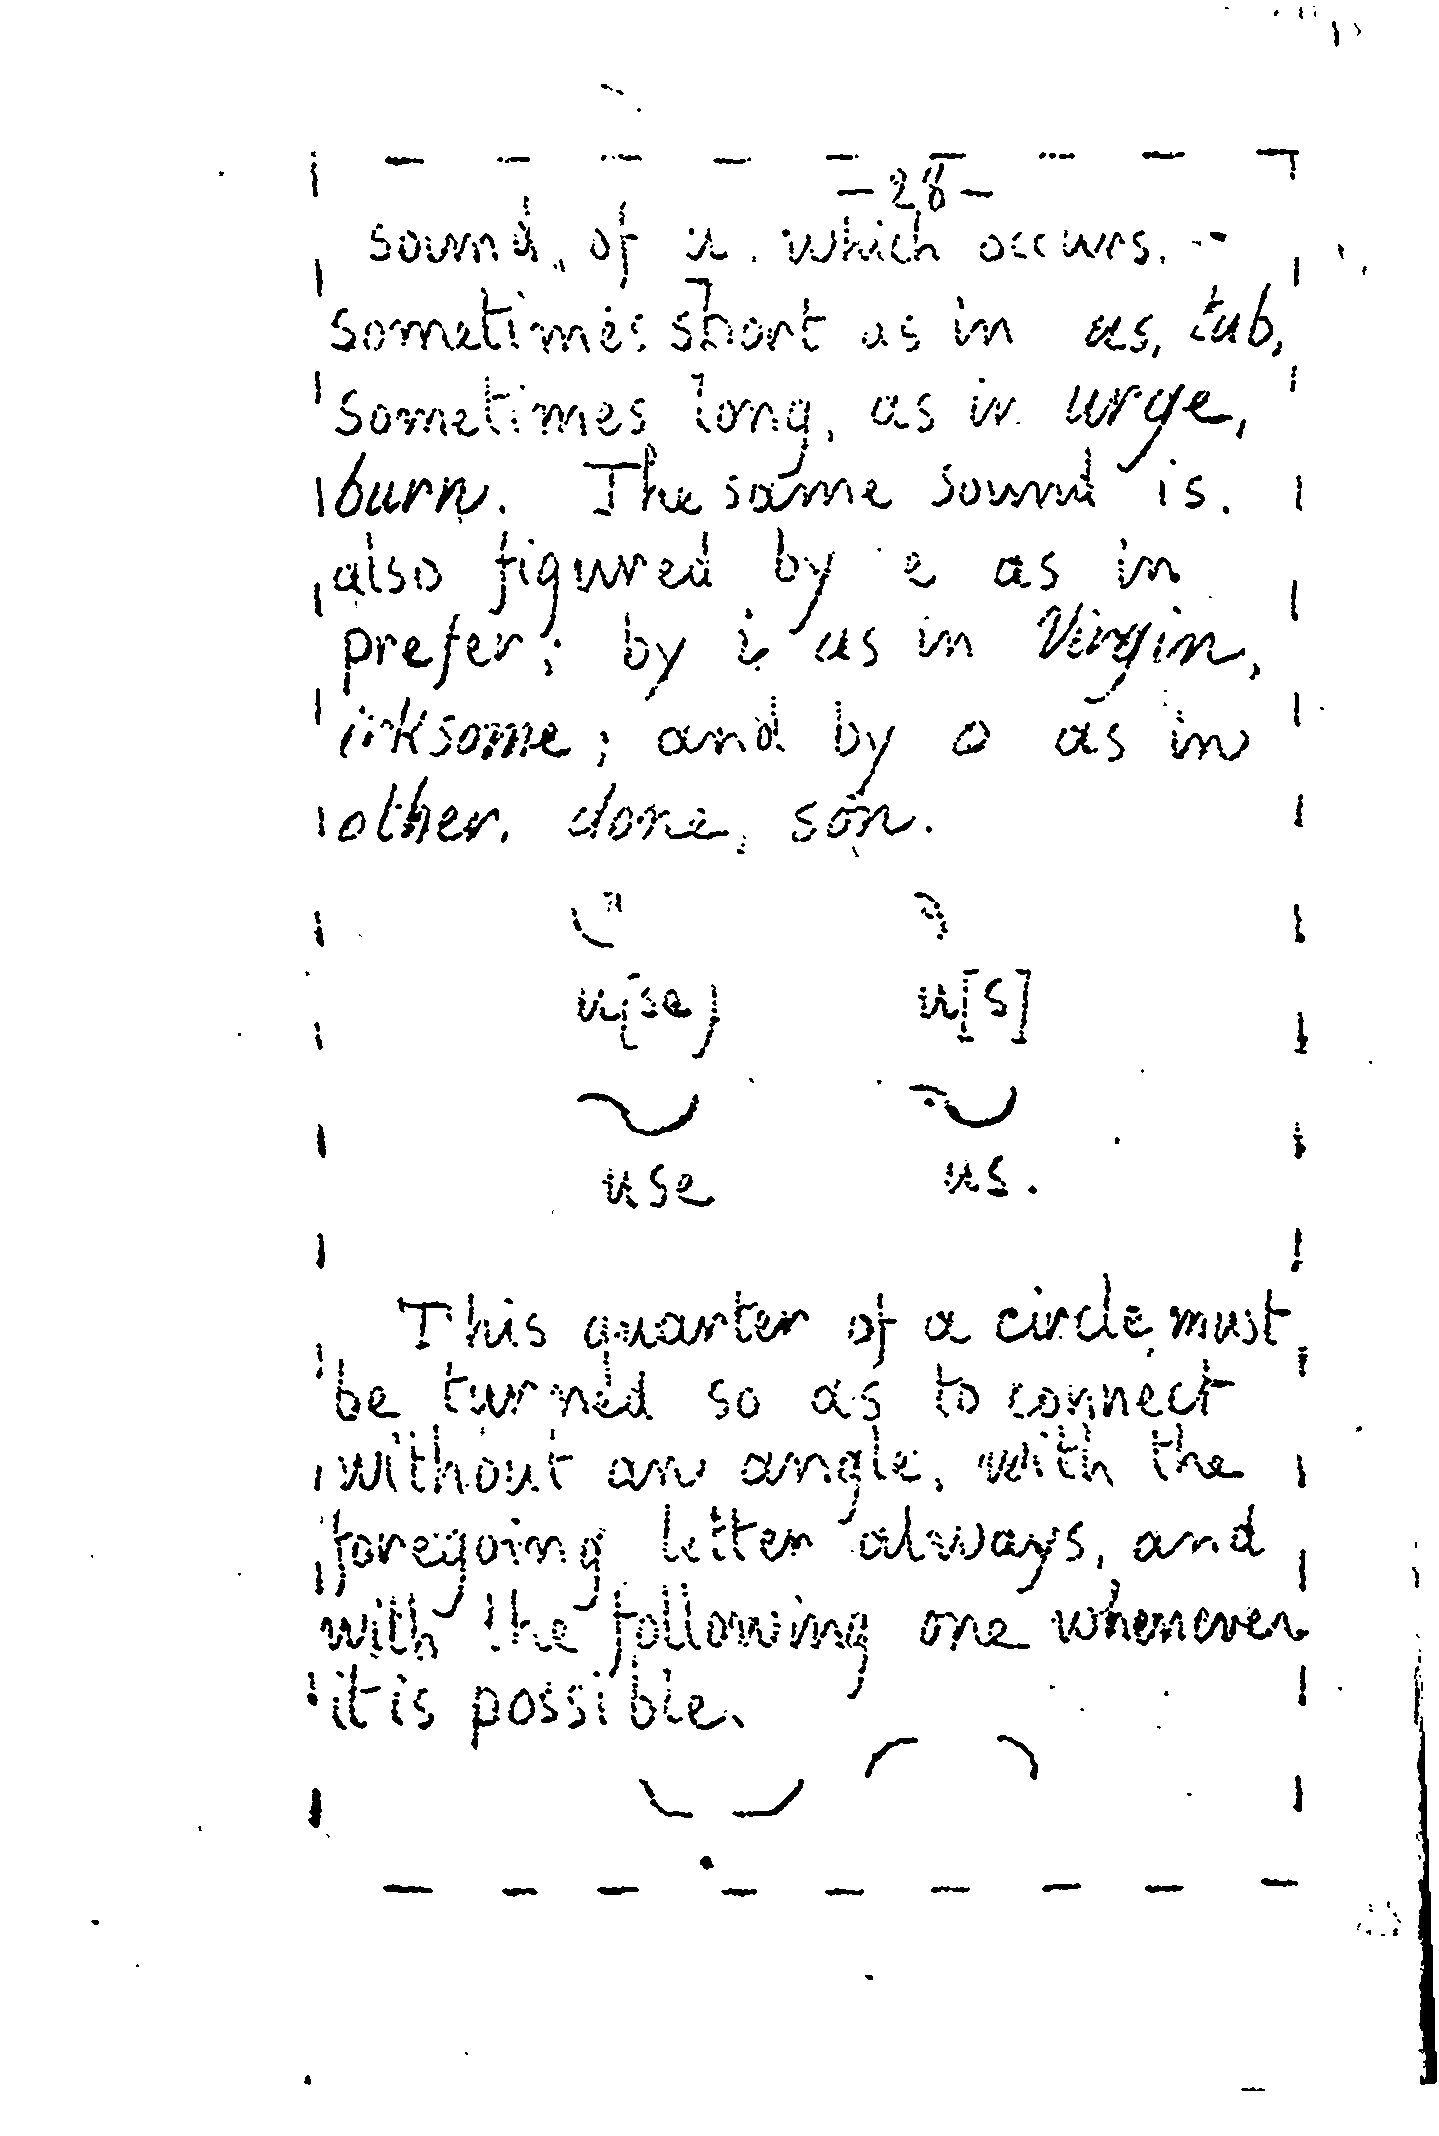 -28-
sound, of u. which occurs.
sometimes short as in us, tub,
sometimes long, as in urge,
burn. The same sound is.
also figured by e as in
prefer; by i as in Virgin,
irksome; and by o as in
other. done, son.
u(se) u[s]
use us.
This quarter of a circle must
be turned so as to connect
without an angle, with the
foregoing letter always, and
with the following one whenever
it is possible.